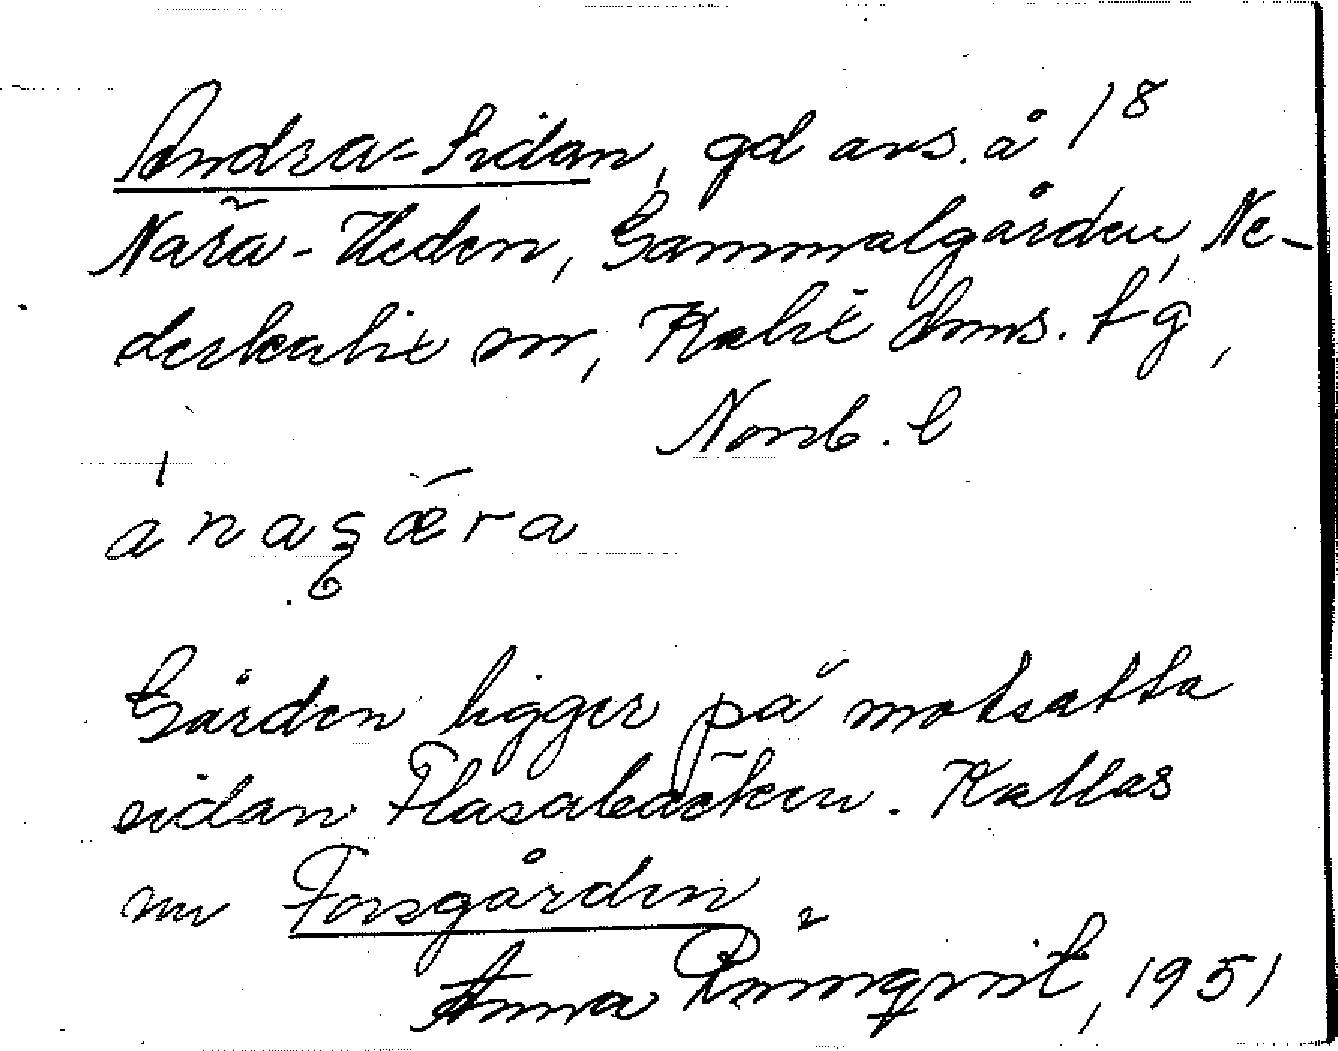 Andra-Sidan, gd avs. å 1/8
Nära-Heden, Gammalgården, Ne-
derkalix sn, Kalix doms. tg,
Norrb. l
Gården ligger på motsatta
sidan Flasabäcken. Kallas
nu Forsgården.
Anna Rönnqvist, 1951